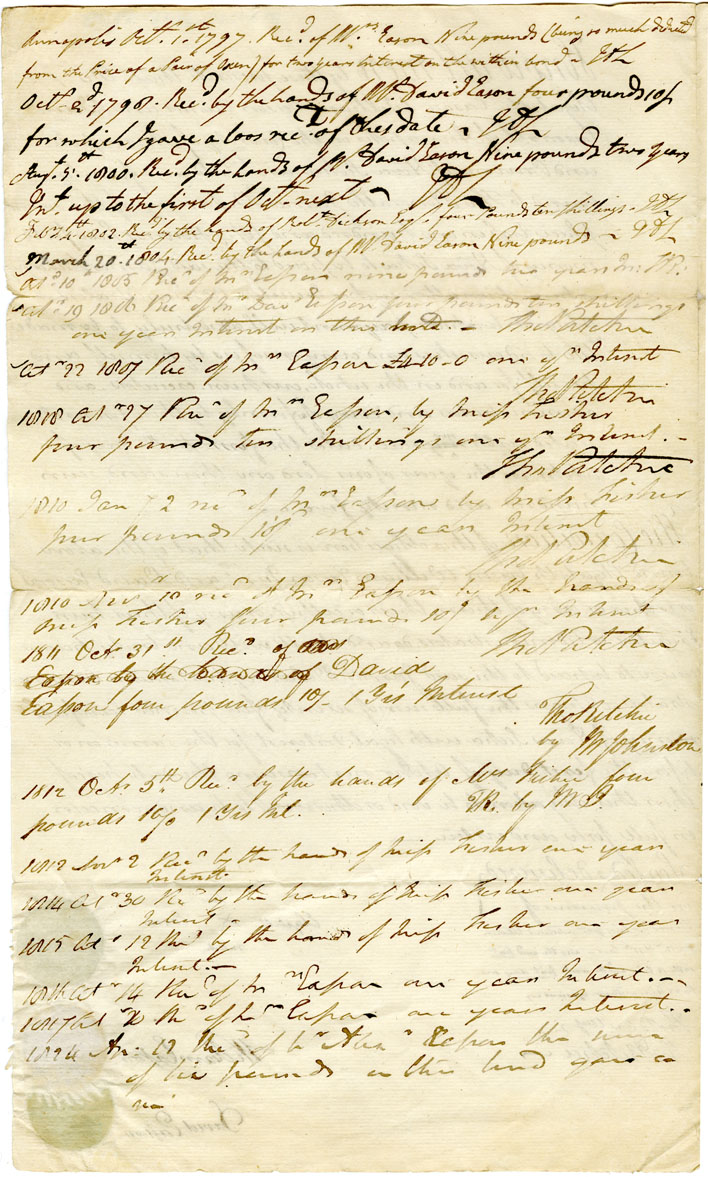 Annapolis Oct. 1st 1797. Recd of Wm Eason Nine pounds (being so much deducted
from the Price of a Pair of Oxen) for two years Interest on the within bond
Octr 2d 1798. Recd by the hands of Mr David Eason four pounds 10/
for which I gave a loos rect of this date
Augt 5th 1800. Recd by the hands of Mr David Eason Nine pounds two years
Int. up to the first of Octr next
1802. Recd by the hands of Robt Dickson Esqr four Pounds ten Shillings
March 20th 1804. Recd by the hands of Mr David Eason Nine pounds
Octr 10 1805 Recd of Mr Easson nine pounds two years Int. TR.
Octr 19 1806 Recd of Mr Davd Easson four pounds ten shillings
one year Interest on this Thos Ritchie
Octr 22 1807 Recd of Mr Easson £4-10-0 one yrs Interest
Thos Ritchie
1818 Octr 27 Recd of Mr Easson, by miss Fisher
four pounds ten shillings one yrs Interest.
Thos Ritchie
1810 Jany 2 recd of Mr Easson by miss Fisher
four pounds 10/ one years Interest
Thos Ritchie
1810 Novr 18 recd of Mr Easson by the hands of
miss Fisher four pounds 10/ Interest
Thos Ritchie
1811 Octr 31st Recd of
Easson by the hands of David
Easson four pounds 10/- 1 Yrs Interest
Thos Ritchie
by M Johnston
1812 Octr 5th Recd by the hands of four
pounds 10/ 1 Yrs Int.
TR. by M J.
Novr 2 Recd by the hands of miss Fisher one year
Interest
1814 Octr 30 Recd by the hands of miss Fisher one year
Interest
1815 Octr 12 Recd by the hands of miss Fisher one year
Interest.
1816 Octr 14 Recd of Mr Easson one years Interest.
1817 Octr Recd of Mr Easson one years Interest.
1824 12 Recd of Mr the sum
of pounds on this bond